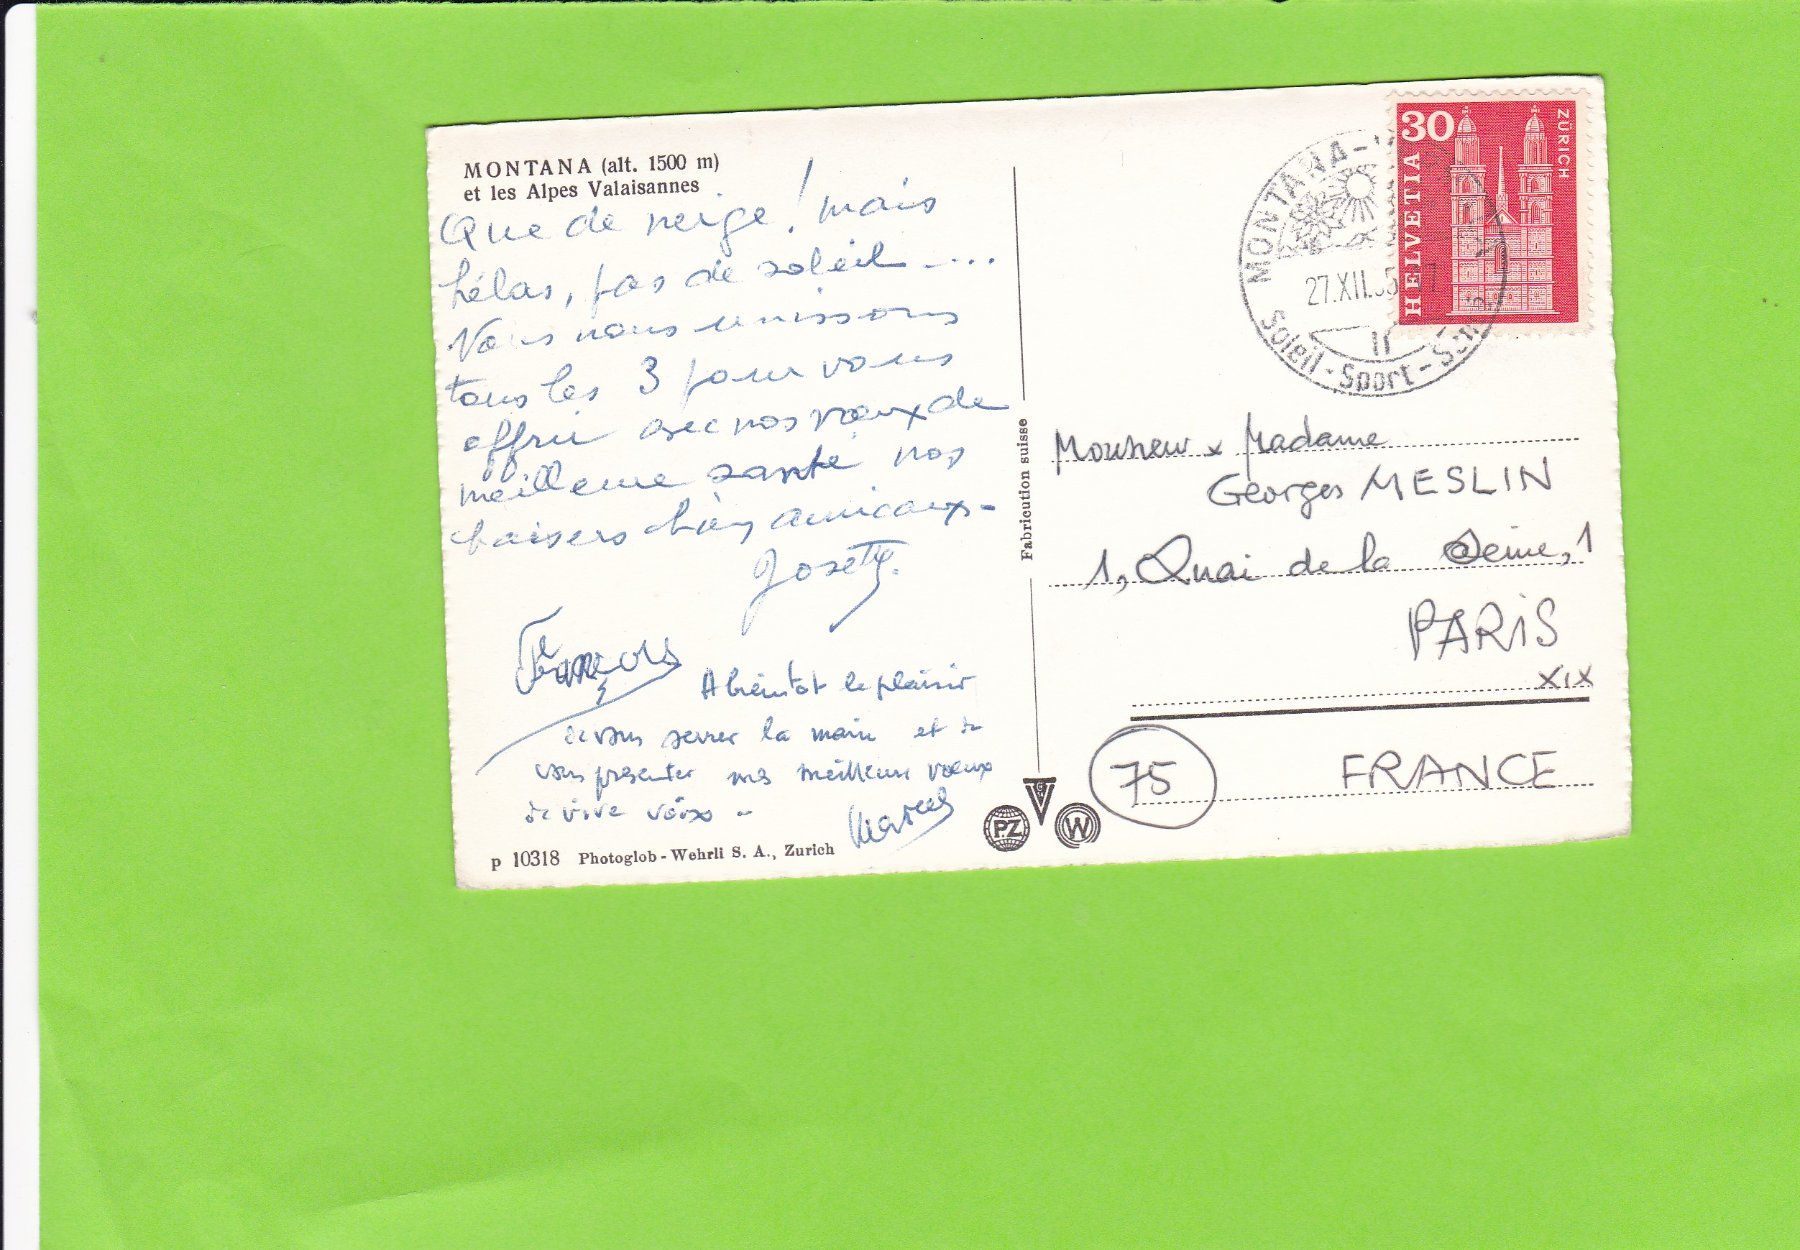 MONTANA (alt. 1500 m)
et les Alpes Valaisannes
Que de neige! mais
hélas, pas de soleil ....
Nous nous unissons
tous les 3 pour vous
offrir avec nos vœux de
meilleure santé nos
baisers bien amicaux -
Josette.
François
A bientôt le plaisir
de vous serrer la main et de
vous presenter mes meilleurs vœux
de vive voix -
Marcel
p 10318 Photoglob - Wehrli S. A., Zurich
Fabrication suisse
PZ
W
MONTANA-
27.XII.
17
Soleil - Sport -
30
HELVETIA
ZÜRICH
Monsieur x Madame
Georges MESLIN
1, Quai de la Seine, 1
PARIS
XIX
75
FRANCE